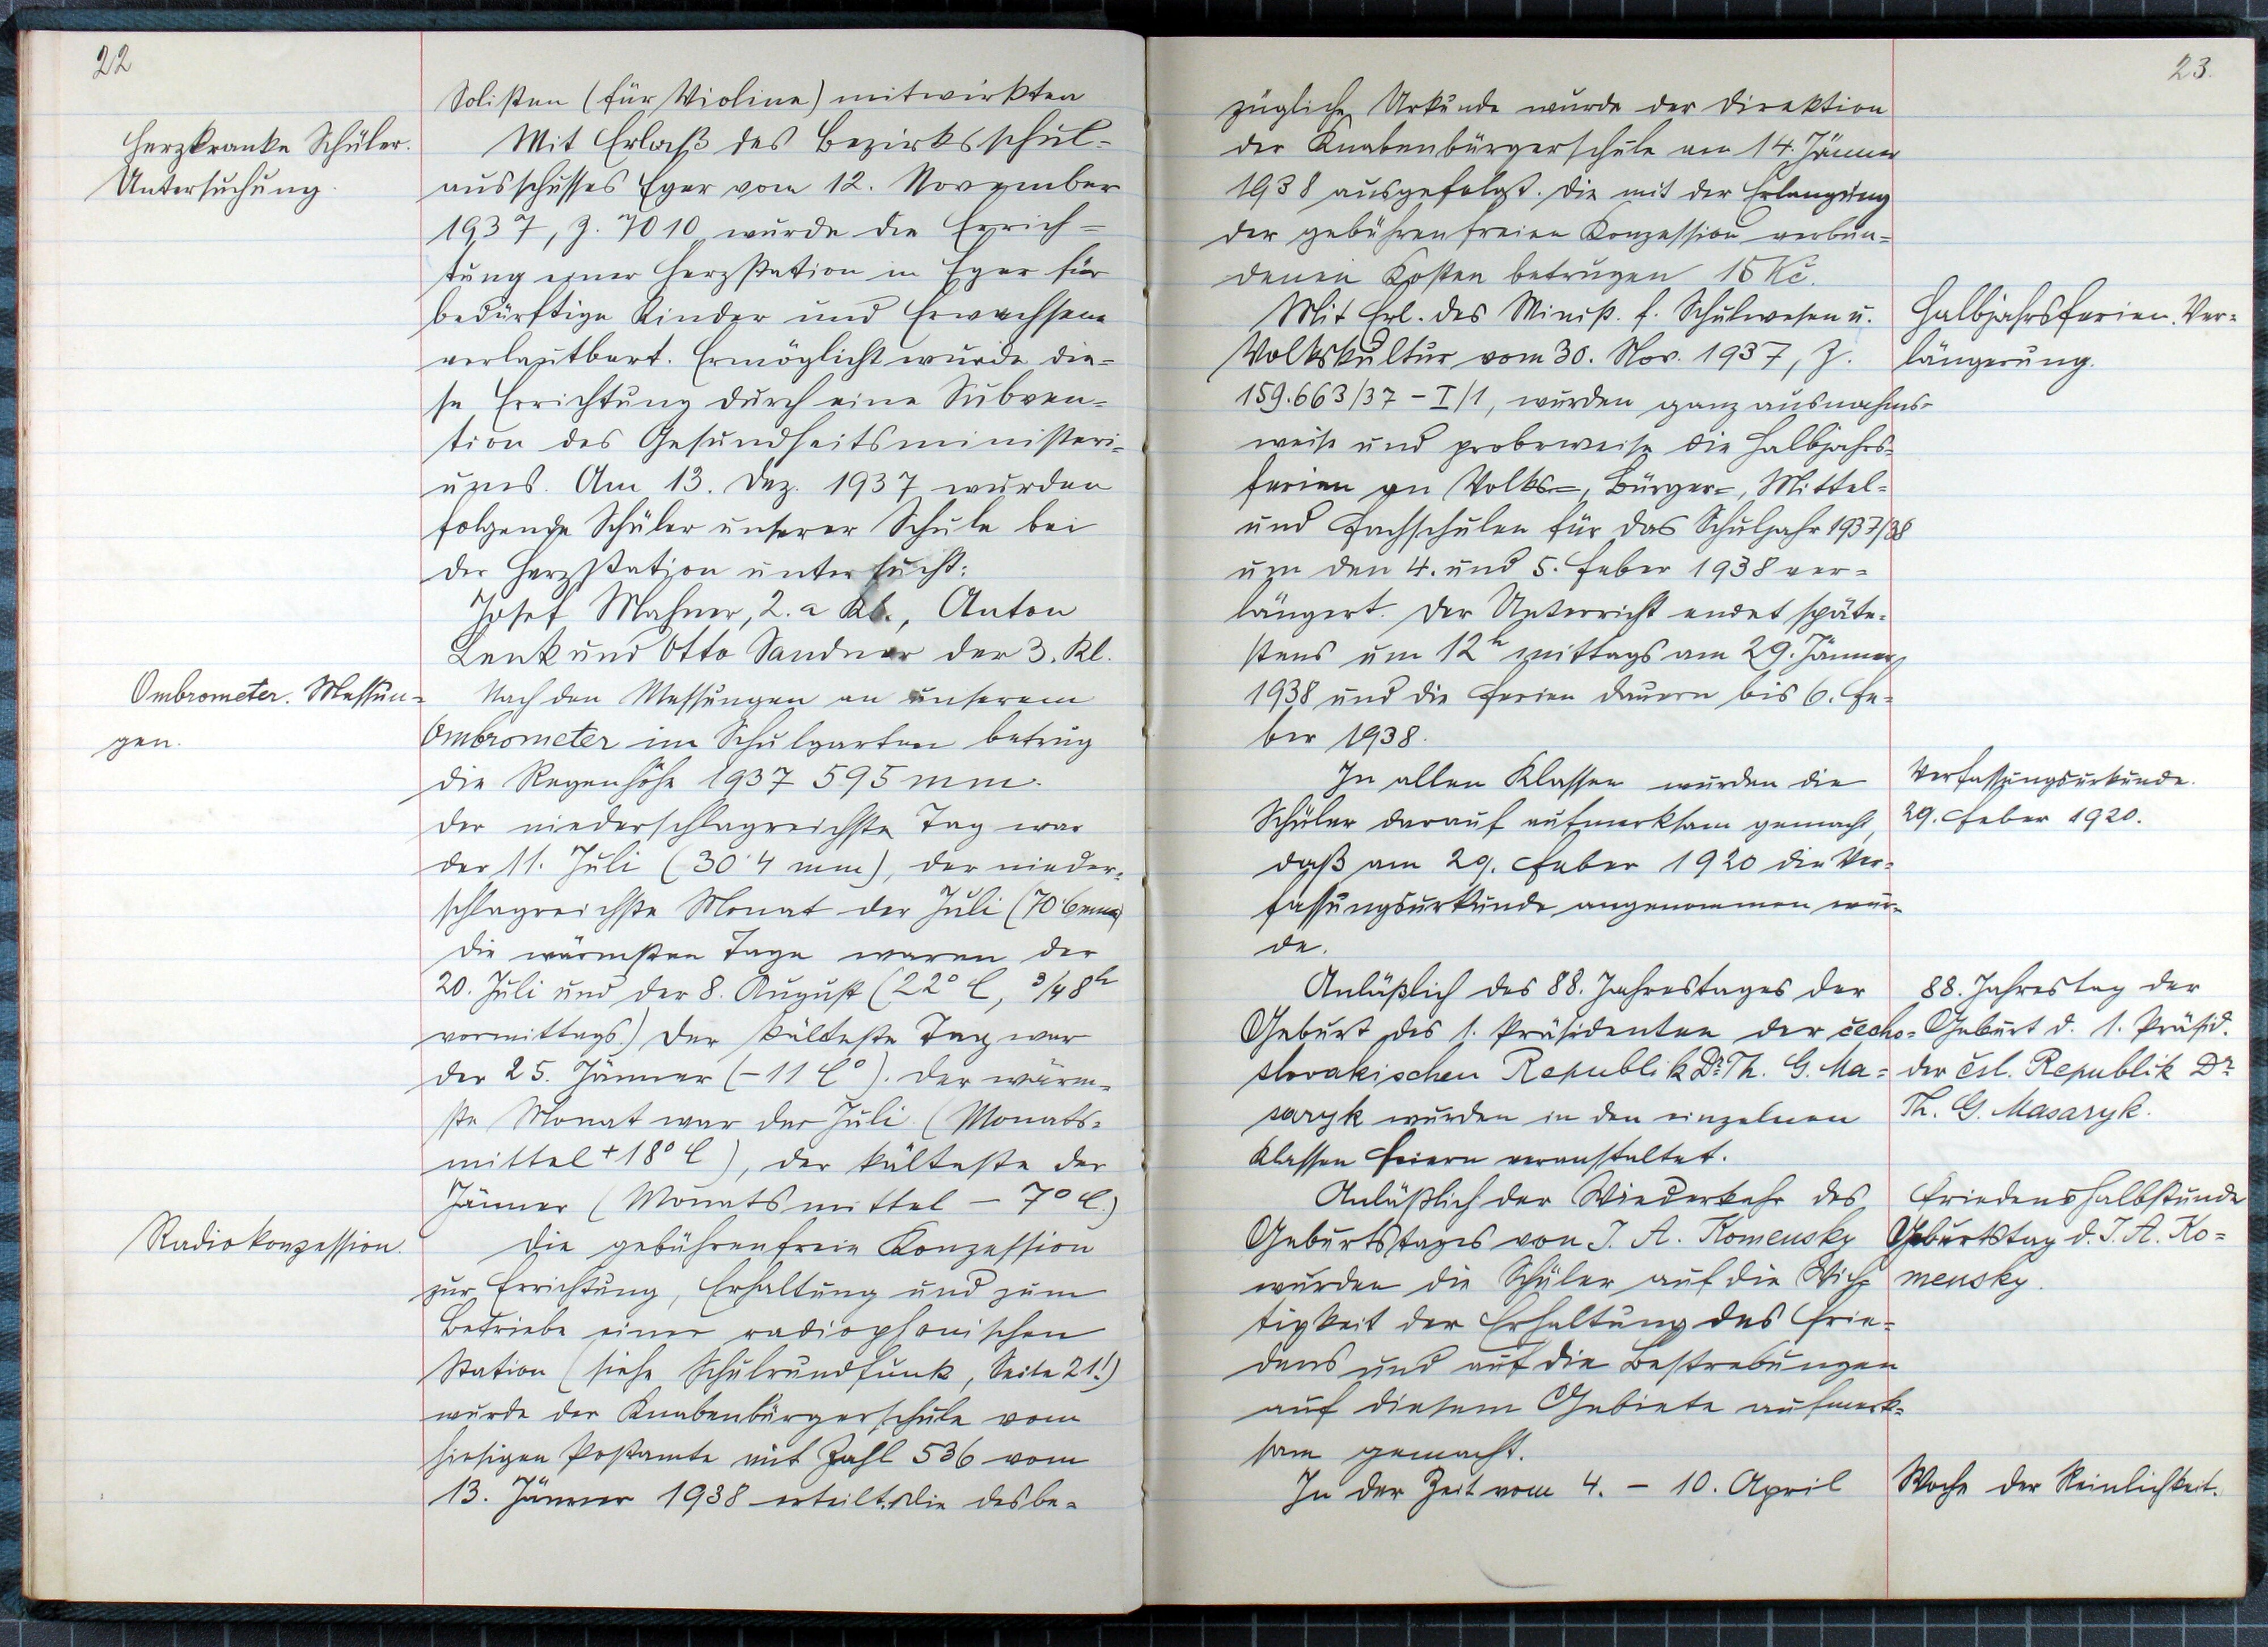 22
Herzkranke Schüler.
Untersuchung.
Solisten (für Violine) mitwirkten
Mit Erlaß des Bezirksschul=
ausschusses Eger vom 12. November
1937, Z. 7010 wurde die Errich=
tung einer Herzstation in Eger für
bedürftige Kinder und Erwachsene
verlautbart. Ermöglicht wurde die=
se Errichtung durch eine Subven=
tion des Gesundheitsministeri=
ums. Am 13. Dez. 1937 wurden
folgende Schüler unserer Schule bei
der Herzstation untersucht:
Josef Mahner, 2. a Kl., Anton
Lenk und Otto Sandner der 3. Kl.
Ombrometer. Messun=
gen.
Nach den Messungen an unserem
Ombrometer im Schulgarten betrug
die Regenhöhe 1937 595 mm.
Der niederschlagreichste Tag war
der 11. Juli (30·4 mm), der nieder=
schlagreichste Monat der Juli (70·6 mm)
Die wärmsten Tage waren der
20. Juli und der 8. August (22° C, 3/4 8h
vormittags.) Der kälteste Tag war
der 25. Jänner (-11 C°). Der wärm=
ste Monat war der Juli (Monats=
mittel +18° C), der kälteste der
Jänner (Monatsmittel – 7° C.)
Radiokonzession.
Die gebührenfreie Konzession
zur Errichtung, Erhaltung und zum
Betriebe einer radiophonischen
Station (siehe Schulrundfunk, Seite 21!)
wurde der Knabenbürgerschule vom
hiesigen Postamte mit Zahl 536 vom
13. Jänner 1938 erteilt. Die desbe=
23.
zügliche Urkunde wurde der Direktion
der Knabenbürgerschule am 14. Jänner
1938 ausgefolgt. Die mit der Erlangung
der gebührenfreien Konzession verbun=
denen Kosten betrugen 15 Kč.
Mit Erl. des Minist. f. Schulwesen u.
Volkskultur vom 30. Nov. 1937, Z.
159.663/37 – I/1, wurden ganz ausnahms=
weise und probeweise die Halbjahrs=
ferien an Volks=, Bürger=, Mittel=
und Fachschulen für das Schuljahr 1937/38
um den 4. und 5. Feber 1938 ver=
längert. Der Unterricht endet späte=
stens um 12h mittags am 29. Jänner
1938 und die Ferien dauern bis 6. Fe=
ber 1938.
Halbjahrsferien. Ver=
längerung.
In allen Klassen wurden die
Schüler darauf aufmerksam gemacht,
daß am 29. Feber 1920 die Ver=
fassungsurkunde angenommen wur=
de.
Verfassungsurkunde.
29. Feber 1920.
Anläßlich des 88. Jahrestages der
Geburt des 1. Präsidenten der čecho=
slovakischen Republik Dr. Th. G. Ma=
saryk wurden in den einzelnen
Klassen Feiern veranstaltet.
88. Jahrestag der
Geburt d. 1. Präsid.
der čsl. Republik Dr.
Th. G. Masaryk.
Anläßlich der Wiederkehr des
Geburtstages von J. A. Komensky
wurden die Schüler auf die Wich=
tigkeit der Erhaltung des Frie=
dens und auf die Bestrebungen
auf diesem Gebiete aufmerk=
sam gemacht.
Friedenshalbstunde
Geburtstag d. J. A. Ko=
mensky.
In der Zeit vom 4. – 10. April
Woche der Reinlichkeit.